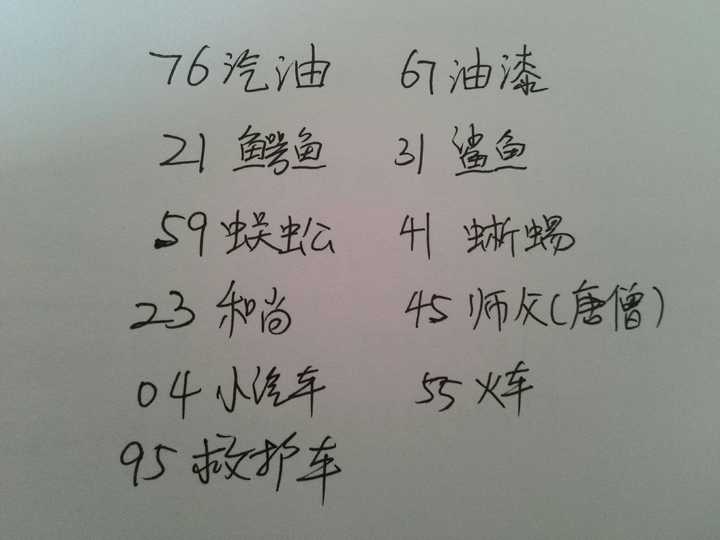 76 汽油 67 油漆
21 鳄鱼 31 鲨鱼
59 蜈蚣 41 蜥蜴
23 和尚 45 师父(唐僧)
04 小汽车 55 火车
95 救护车